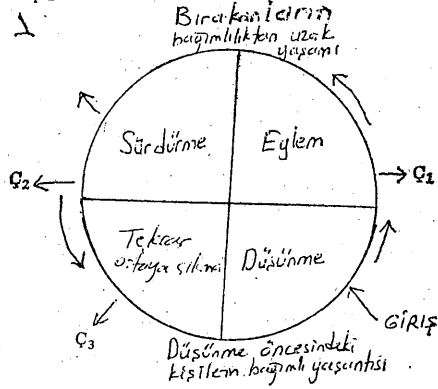 1
Bırakanların
bağımlılıktan uzak
yaşamı
Sürdürme
Eylem
Ç2
Ç1
Tekrar
ortaya çıkma
Düşünme
GİRİŞ
Ç3
Düşünme öncesindeki
kişilerin bağımlı yaşantısı